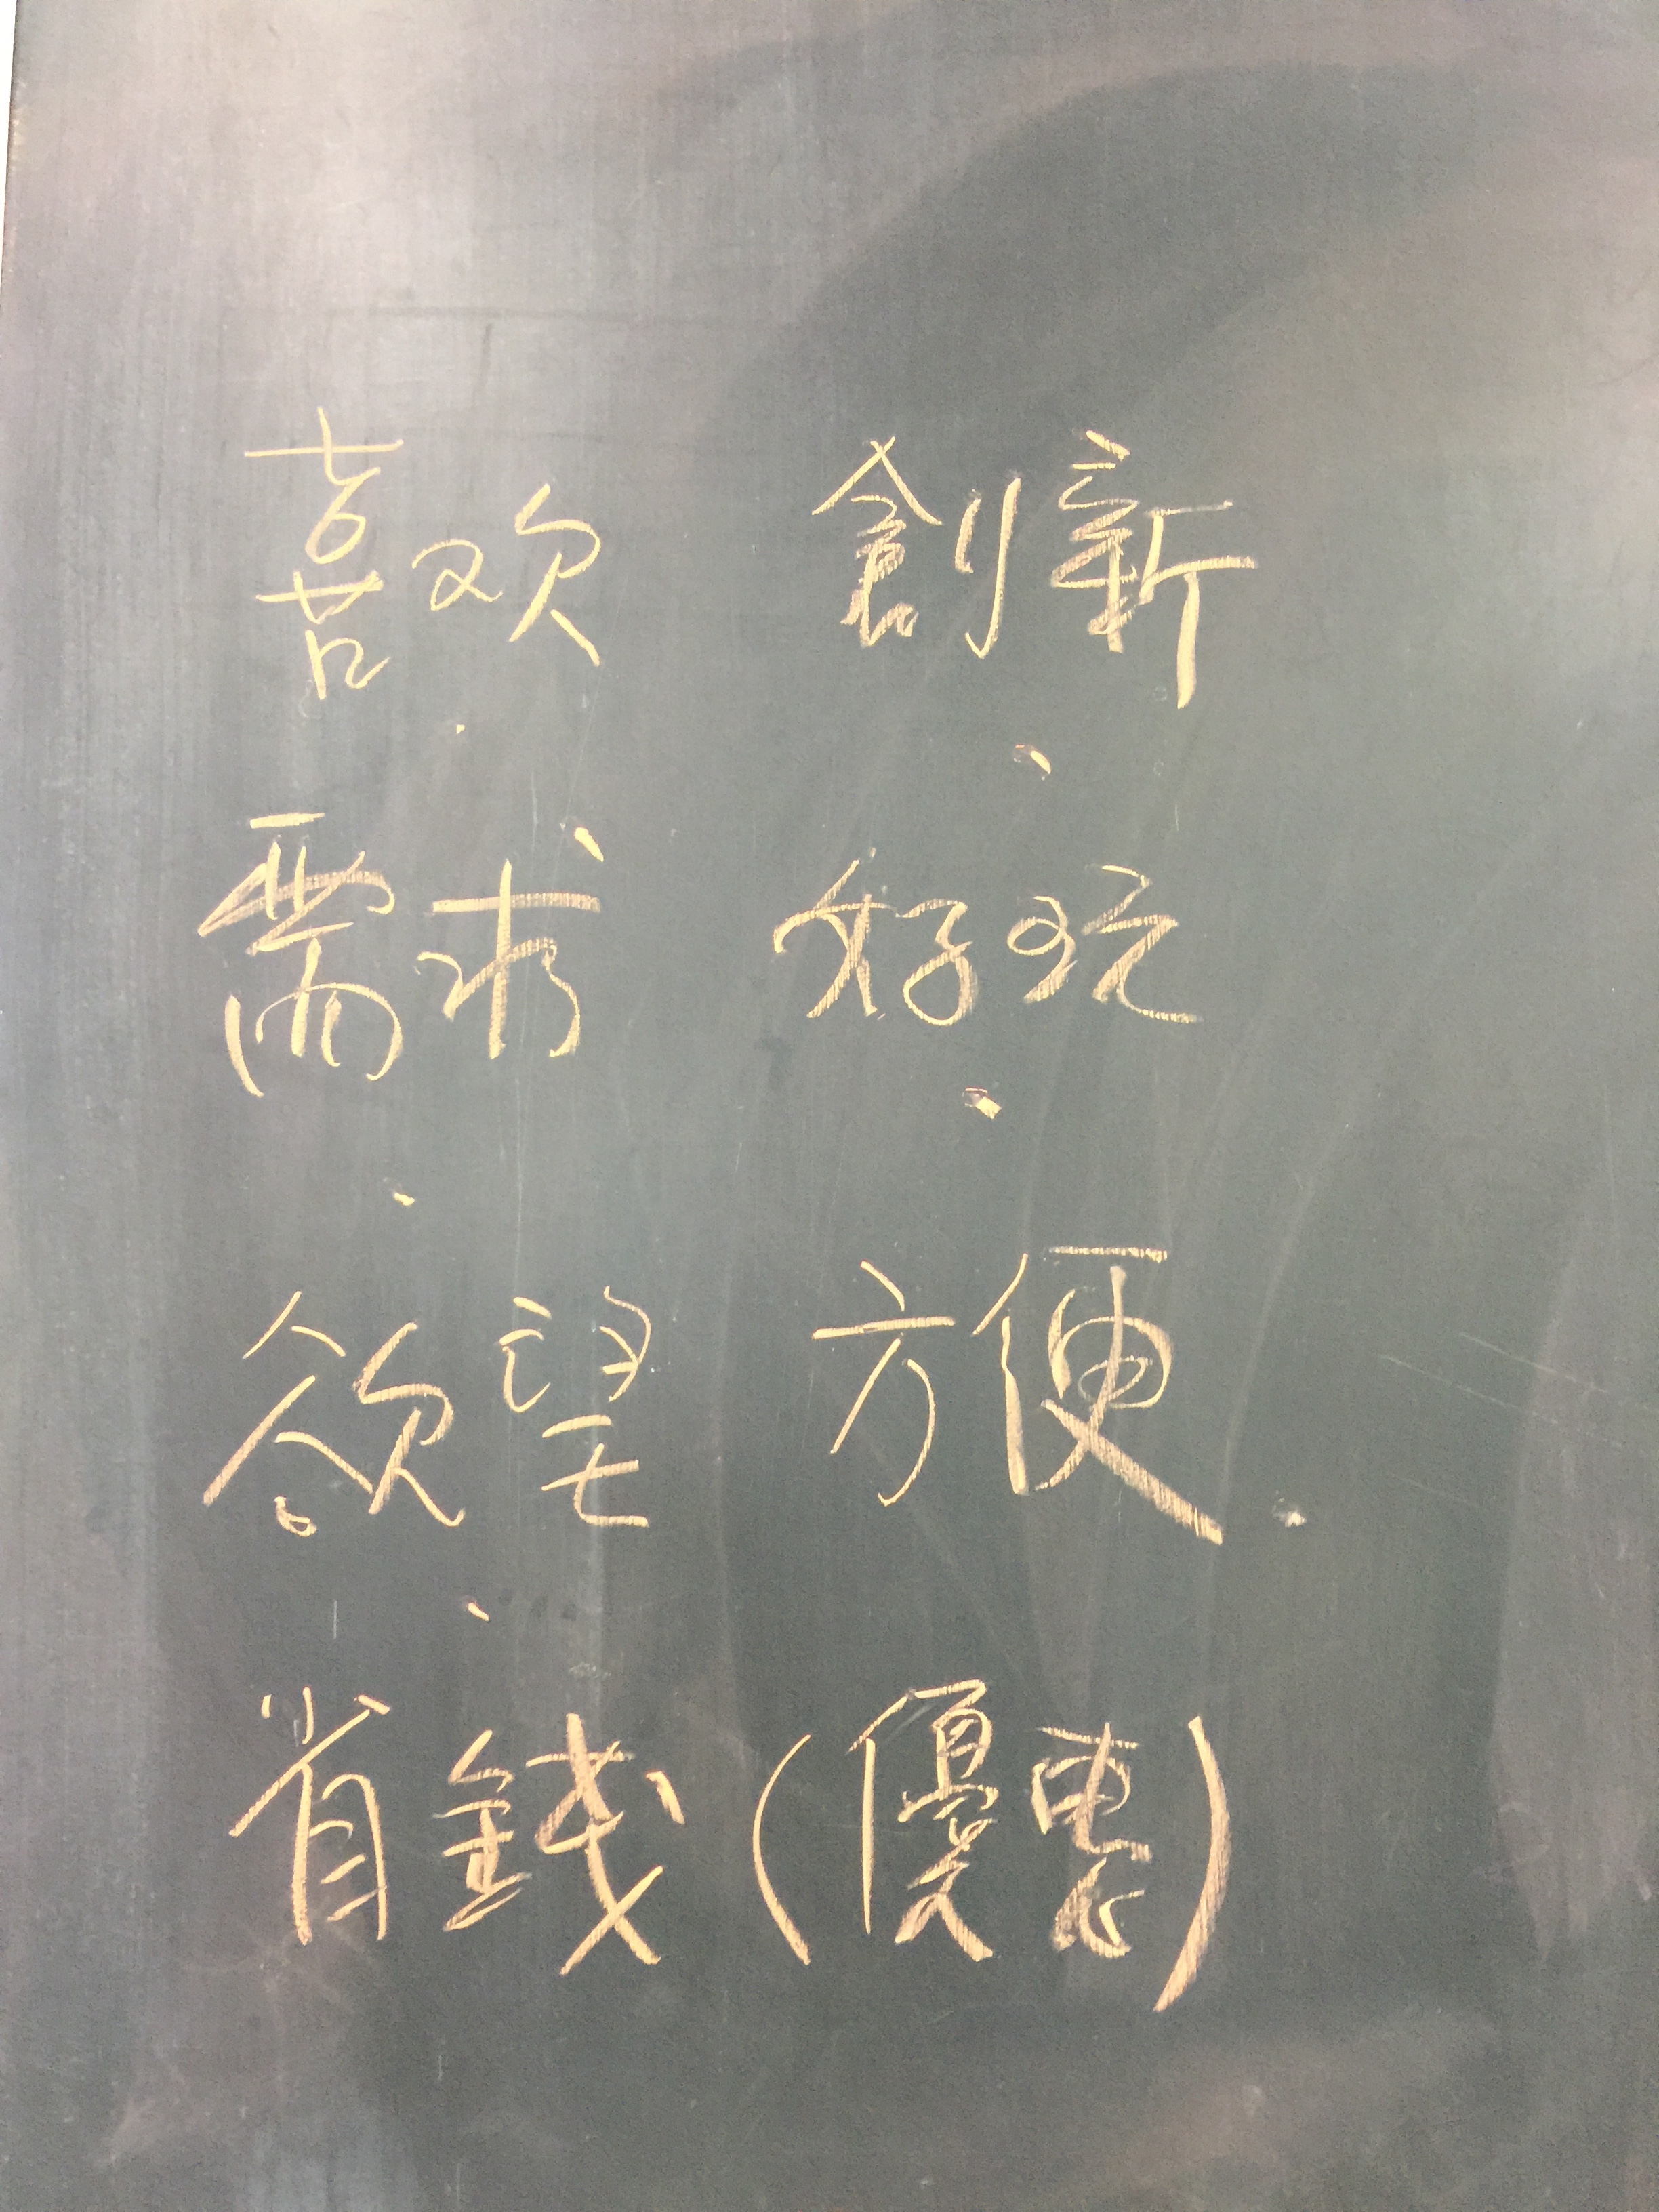 喜欢 創新
需求 好玩
欲望 方便
省錢(優惠)